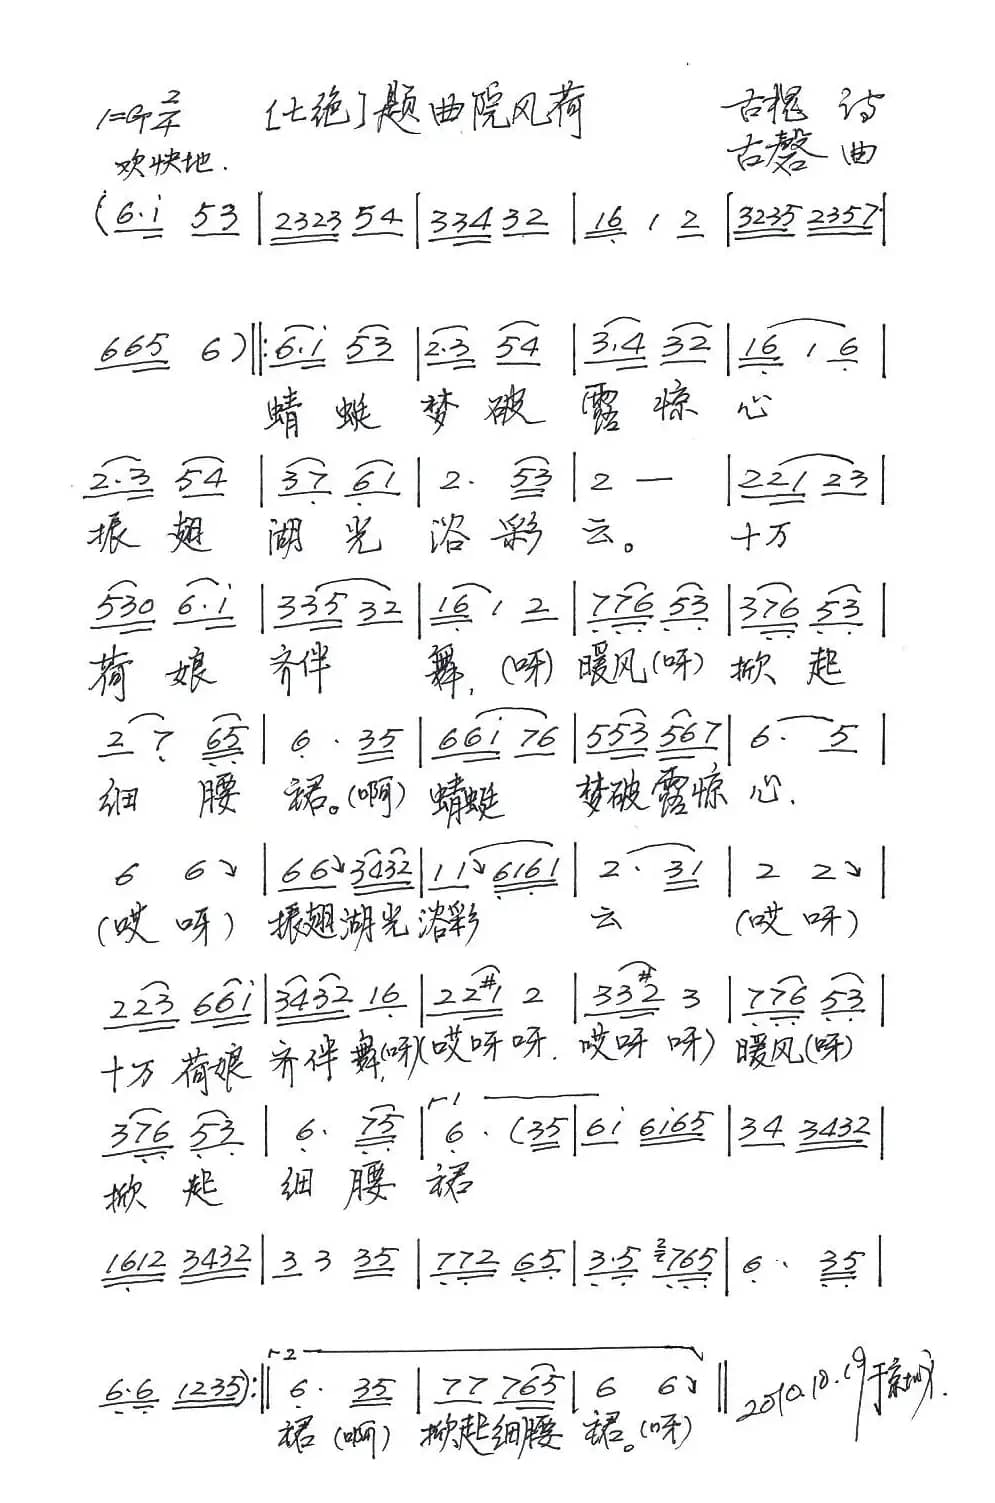 1=G 2/4 [七绝]题曲院风荷 古槐 诗
欢快地. 古磬 曲
(6·i 53 | 2323 54 | 334 32 | 16 1 2 | 3235 2357 |
665 6) ‖: 6·i 53 | 2·3 54 | 3·4 32 | 16 1 6 |
蜻蜓 梦破 露惊 心
2·3 54 | 37 61 | 2· 53 | 2 — | 221 23 |
振翅 湖光 浴彩 云。 十万
530 6·i | 335 32 | 16 1 2 | 776 53 | 376 53 |
荷娘 齐伴 舞,(呀) 暖风(呀) 掀起
2 7 65 | 6· 35 | 66i 76 | 553 567 | 6· 5 |
细腰 裙。(啊) 蜻蜓 梦破露惊 心.
6 6↘ | 66↘ 3432 | 11↘ 6161 | 2· 31 | 2 2↘ |
(哎呀) 振翅湖光 浴彩 云 (哎呀)
223 66i | 3432 16 | 22#1 2 | 33#2 3 | 776 53 |
十万荷娘 齐伴舞,(呀)(哎呀呀. 哎呀呀) 暖风(呀)
376 53 | 6· 75 | ┌1 6· (35 | 6i 6i65 | 34 3432 |
掀起 细腰 裙
1612 3432 | 3 3 35 | 772 65 | 3·5 2765 | 6· 35 |
6·6 1235) :‖ ┌2 6· 35 | 77 765 | 6 6↘ ‖ 2010.10.19于京城.
裙(啊) 掀起细腰 裙。(呀)